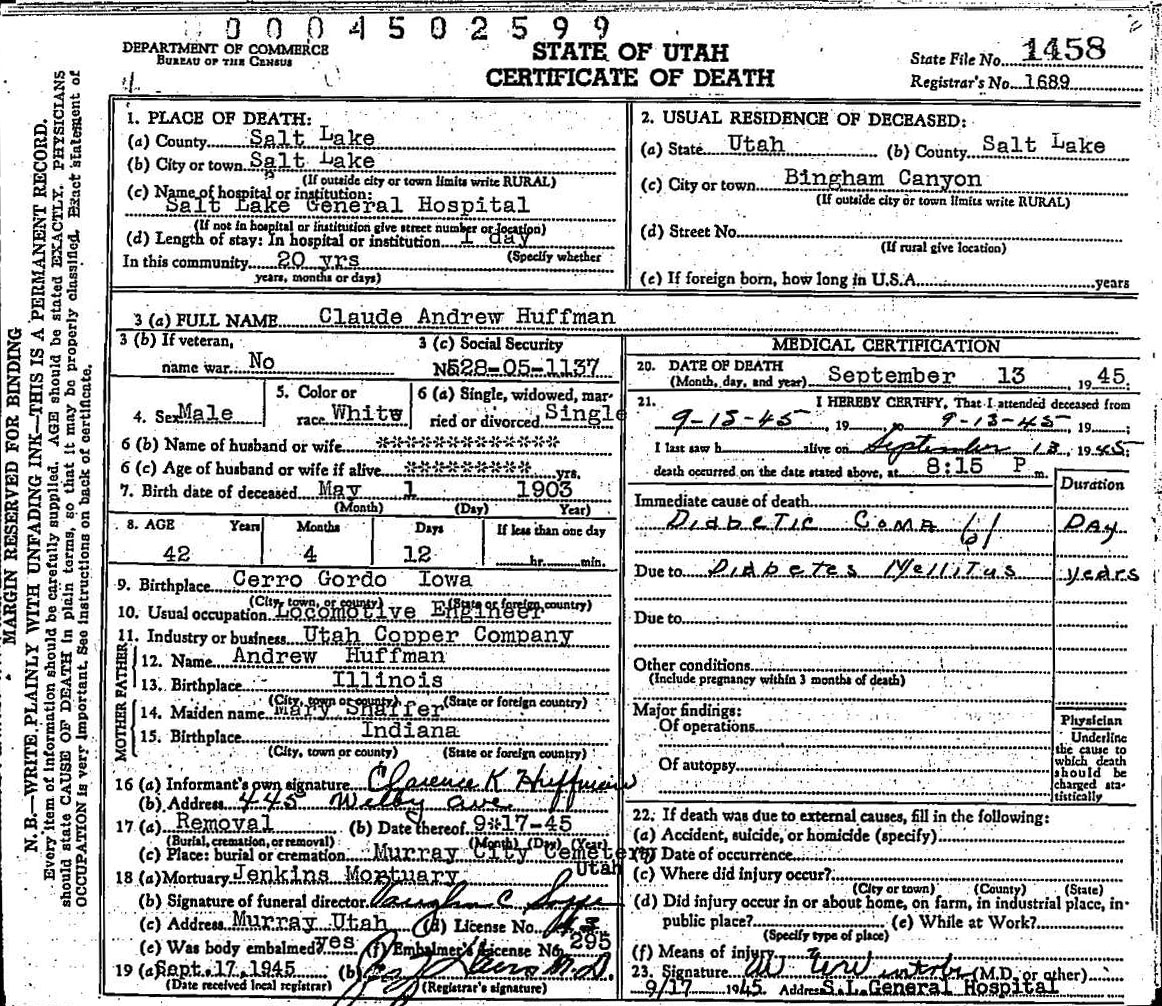 0 0 0 4 5 0 2 5 9 9
DEPARTMENT OF COMMERCE
BUREAU OF THE CENSUS
STATE OF UTAH
CERTIFICATE OF DEATH
State File No. 1458
Registrar's No. 1689
MARGIN RESERVED FOR BINDING
N. B.—WRITE PLAINLY WITH UNFADING INK—THIS IS A PERMANENT RECORD.
Every item of information should be carefully supplied. AGE should be stated EXACTLY. PHYSICIANS
should state CAUSE OF DEATH in plain terms, so that it may be properly classified. Exact statement of
OCCUPATION is very important. See instructions on back of certificate.
1. PLACE OF DEATH:
(a) County Salt Lake
(b) City or town Salt Lake
(If outside city or town limits write RURAL)
(c) Name of hospital or institution:
Salt Lake General Hospital
(If not in hospital or institution give street number or location)
(d) Length of stay: In hospital or institution 1 day
(Specify whether
In this community 20 yrs
years, months or days)
2. USUAL RESIDENCE OF DECEASED:
(a) State Utah (b) County Salt Lake
(c) City or town Bingham Canyon
(If outside city or town limits write RURAL)
(d) Street No.
(If rural give location)
(e) If foreign born, how long in U.S.A. years
3 (a) FULL NAME Claude Andrew Huffman
3 (b) If veteran,
name war No
3 (c) Social Security
No 528-05-1137
4. Sex Male
5. Color or
race White
6 (a) Single, widowed, mar-
ried or divorced Single
6 (b) Name of husband or wife ******************
6 (c) Age of husband or wife if alive ************ yrs.
7. Birth date of deceased May 1 1903
(Month) (Day) Year)
8. AGE Years Months Days If less than one day
42 4 12 hr. min.
9. Birthplace Cerro Gordo Iowa
(City, town, or county) (State or foreign country)
10. Usual occupation Locomotive Engineer
11. Industry or business Utah Copper Company
FATHER
12. Name Andrew Huffman
13. Birthplace Illinois
(City, town or county) (State or foreign country)
MOTHER
14. Maiden name Mary Shaffer
15. Birthplace Indiana
(City, town or county) (State or foreign country)
16 (a) Informant's own signature Clarence K Huffman
(b) Address 445 Welby Ave.
17 (a) Removal (b) Date thereof 9*17-45
(Burial, cremation, or removal) (Month) (Day) (Year)
(c) Place: burial or cremation Murray City Cemetery
Utah
18 (a) Mortuary Jenkins Mortuary
(b) Signature of funeral director Vaughn C
(c) Address Murray Utah (d) License No.
(e) Was body embalmed? yes (f) Embalmer's License No. 295
19 (a) Sept. 17, 1945 (b) M.D.
(Date received local registrar) (Registrar's signature)
MEDICAL CERTIFICATION
20. DATE OF DEATH
(Month, day, and year) September 13, 1945;
21. I HEREBY CERTIFY, That I attended deceased from
9-13-45, 19 to 9-13-45, 19 ;
I last saw h alive on September 13, 1945;
death occurred on the date stated above, at 8:15 P m.
Duration
Immediate cause of death
Diabetic Coma 61 Day
Due to Diabetes Mellitus years
Due to
Other conditions
(Include pregnancy within 3 months of death)
Major findings:
Of operations
Of autopsy
Physician
Underline
the cause to
which death
should be
charged sta-
tistically
22. If death was due to external causes, fill in the following:
(a) Accident, suicide, or homicide (specify)
(b) Date of occurrence
(c) Where did injury occur?
(City or town) (County) (State)
(d) Did injury occur in or about home, on farm, in industrial place, in-
public place? (e) While at Work?
(Specify type of place)
(f) Means of injury
23. Signature (M.D. or other)
9/17 1945 Address S.L. General Hospital